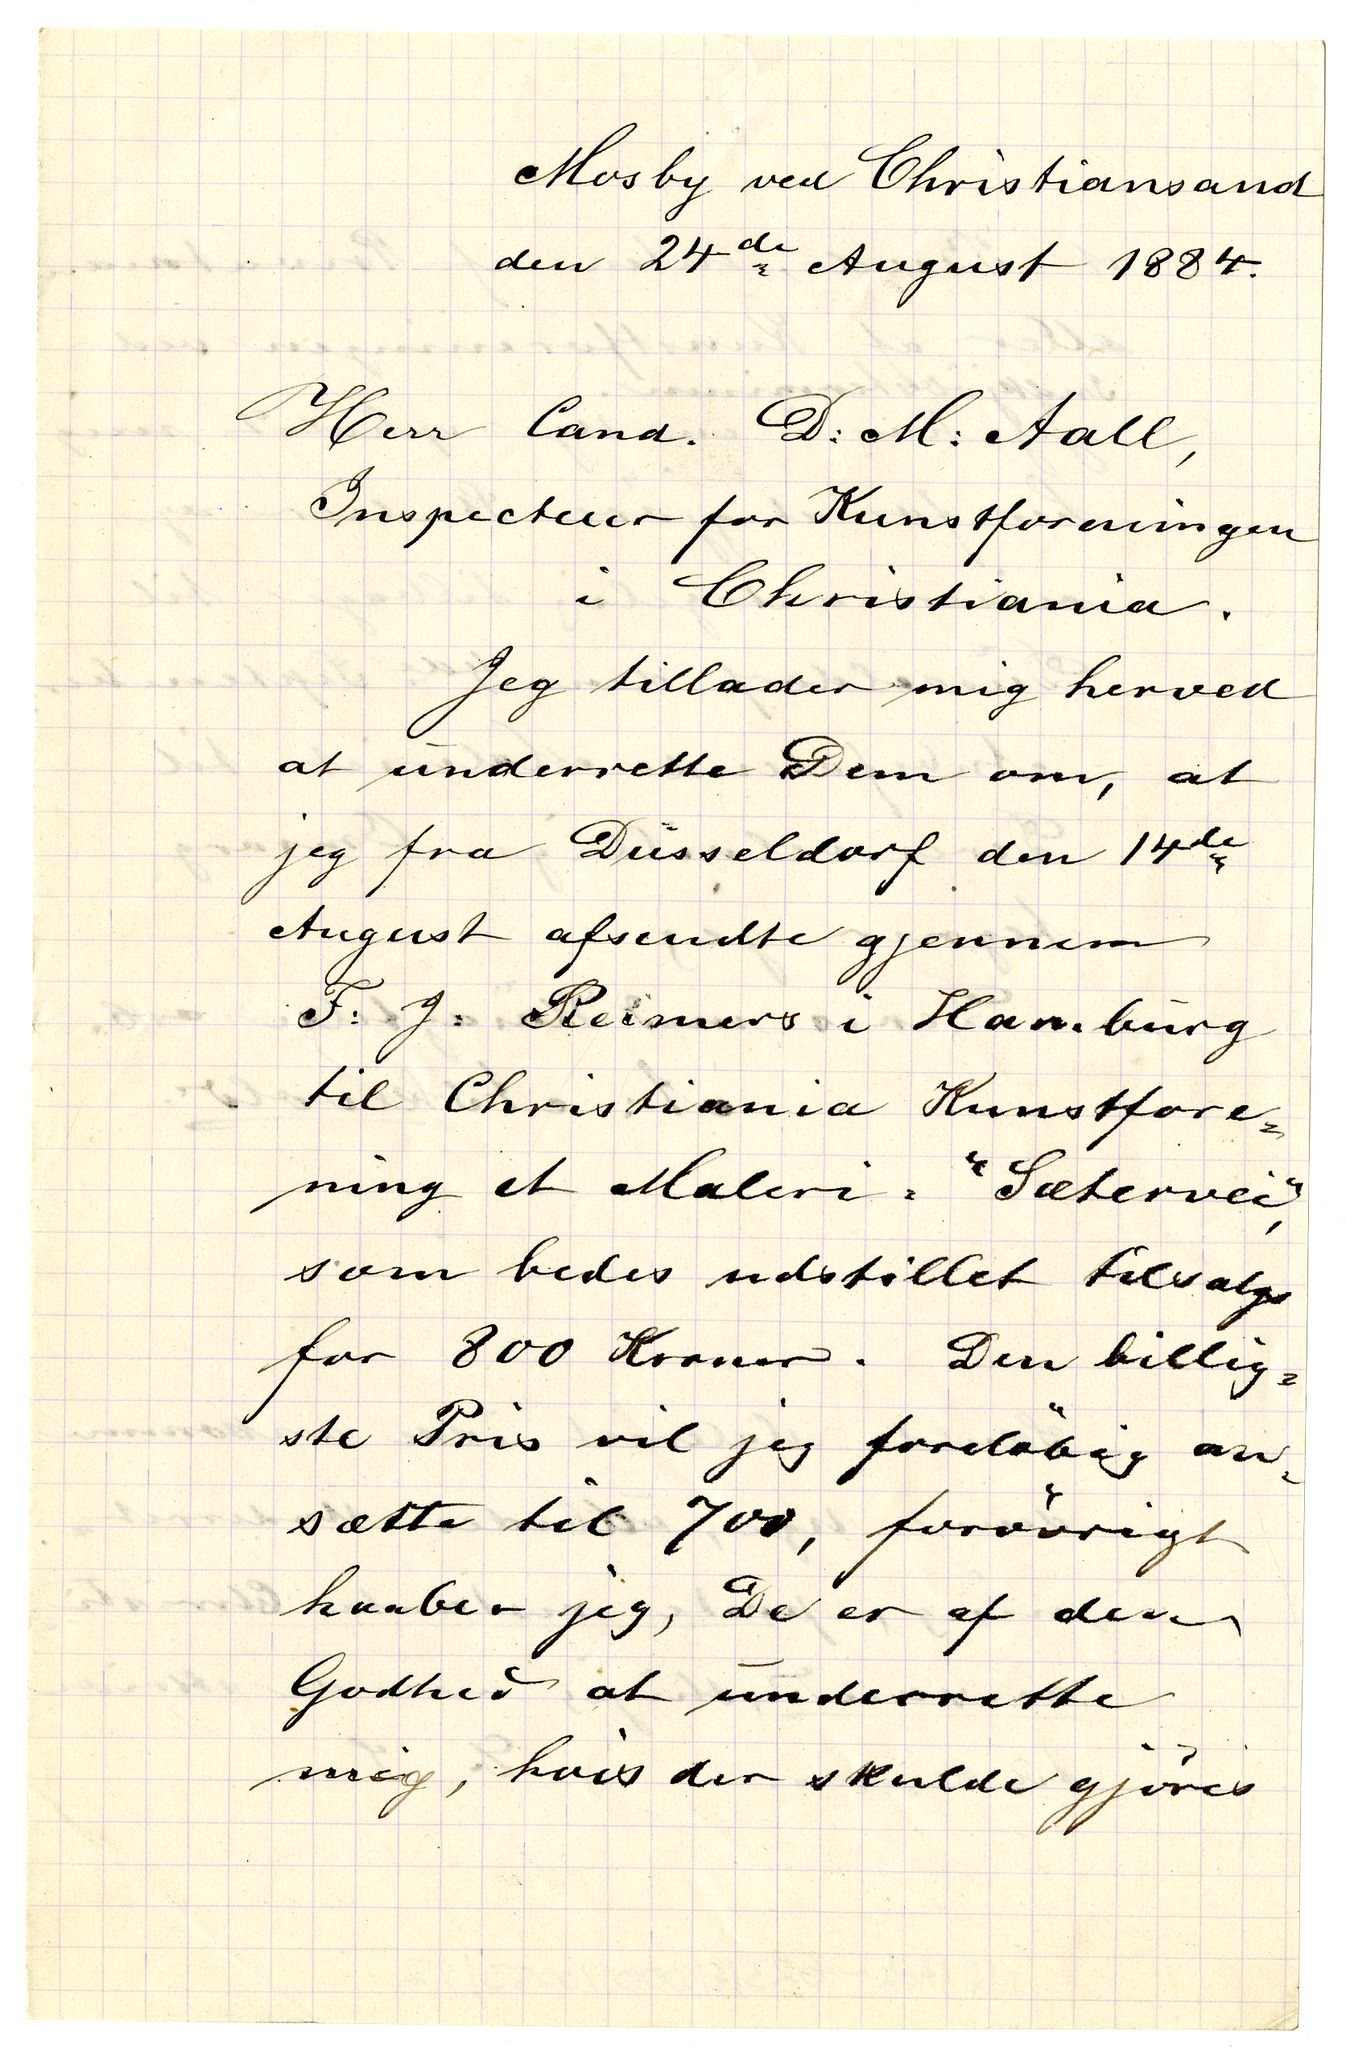 Mosby ved Christiansand
den 24de August 1884.
Herr Cand. D: M: Aall,
Inspecteur for Kunstforeningen
i Christiania.
Jeg tillader mig herved
at ūnderrette Dem om, at
jeg fra Düsseldorf den 14de
August afsendte gjennem
F: J: Reimers i Hambūrg
til Christiania Kunstfore=
ning et Maleri: "Sætervei",
som bedes udstillet tilsalgs
for 800 Kroner. Den billig=
ste Pris vil jeg foreløbig an=
sætte til 700, forövrigt
haaber jeg, De er af den
Godhed at ūnderrette
mig, hvis der skulde gjöres